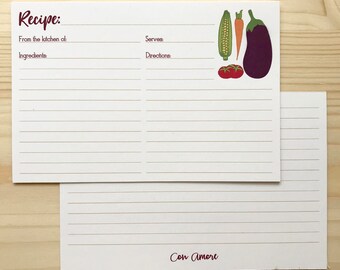 Recipe:
From the kitchen of: Serves:
Ingredients: Directions:
Con Amore